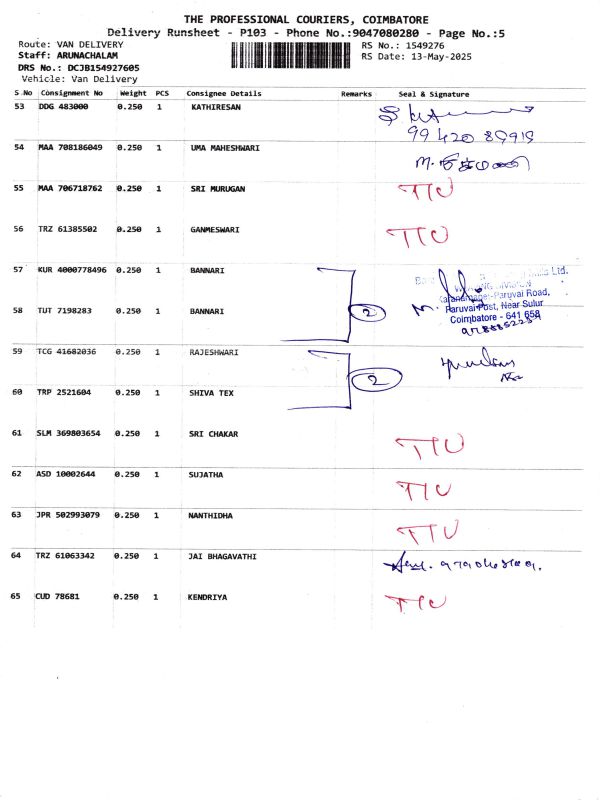 THE PROFESSIONAL COURIERS, COIMBATORE
Delivery Runsheet - P103 - Phone No.:9047080280 - Page No.:5
Route: VAN DELIVERY RS No.: 1549276
Staff: ARUNACHALAM RS Date: 13-May-2025
DRS No.: DCJB154927605
Vehicle: Van Delivery
S.No Consignment No Weight PCS Consignee Details Remarks Seal & Signature
53 DDG 483000 0.250 1 KATHIRESAN
99420 89919
54 MAA 708186049 0.250 1 UMA MAHESHWARI
55 MAA 706718762 0.250 1 SRI MURUGAN
56 TRZ 61385502 0.250 1 GANMESWARI
57 KUR 4000778496 0.250 1 BANNARI
Ltd.
Paruvai Road,
58 TUT 7198283 0.250 1 BANNARI 2 Paruvai Post, Near Sulur
Coimbatore - 641 658
59 TCG 41682036 0.250 1 RAJESHWARI
2
60 TRP 2521604 0.250 1 SHIVA TEX
61 SLM 369803654 0.250 1 SRI CHAKAR
62 ASD 10002644 0.250 1 SUJATHA
63 JPR 502993079 0.250 1 NANTHIDHA
64 TRZ 61063342 0.250 1 JAI BHAGAVATHI
65 CUD 78681 0.250 1 KENDRIYA